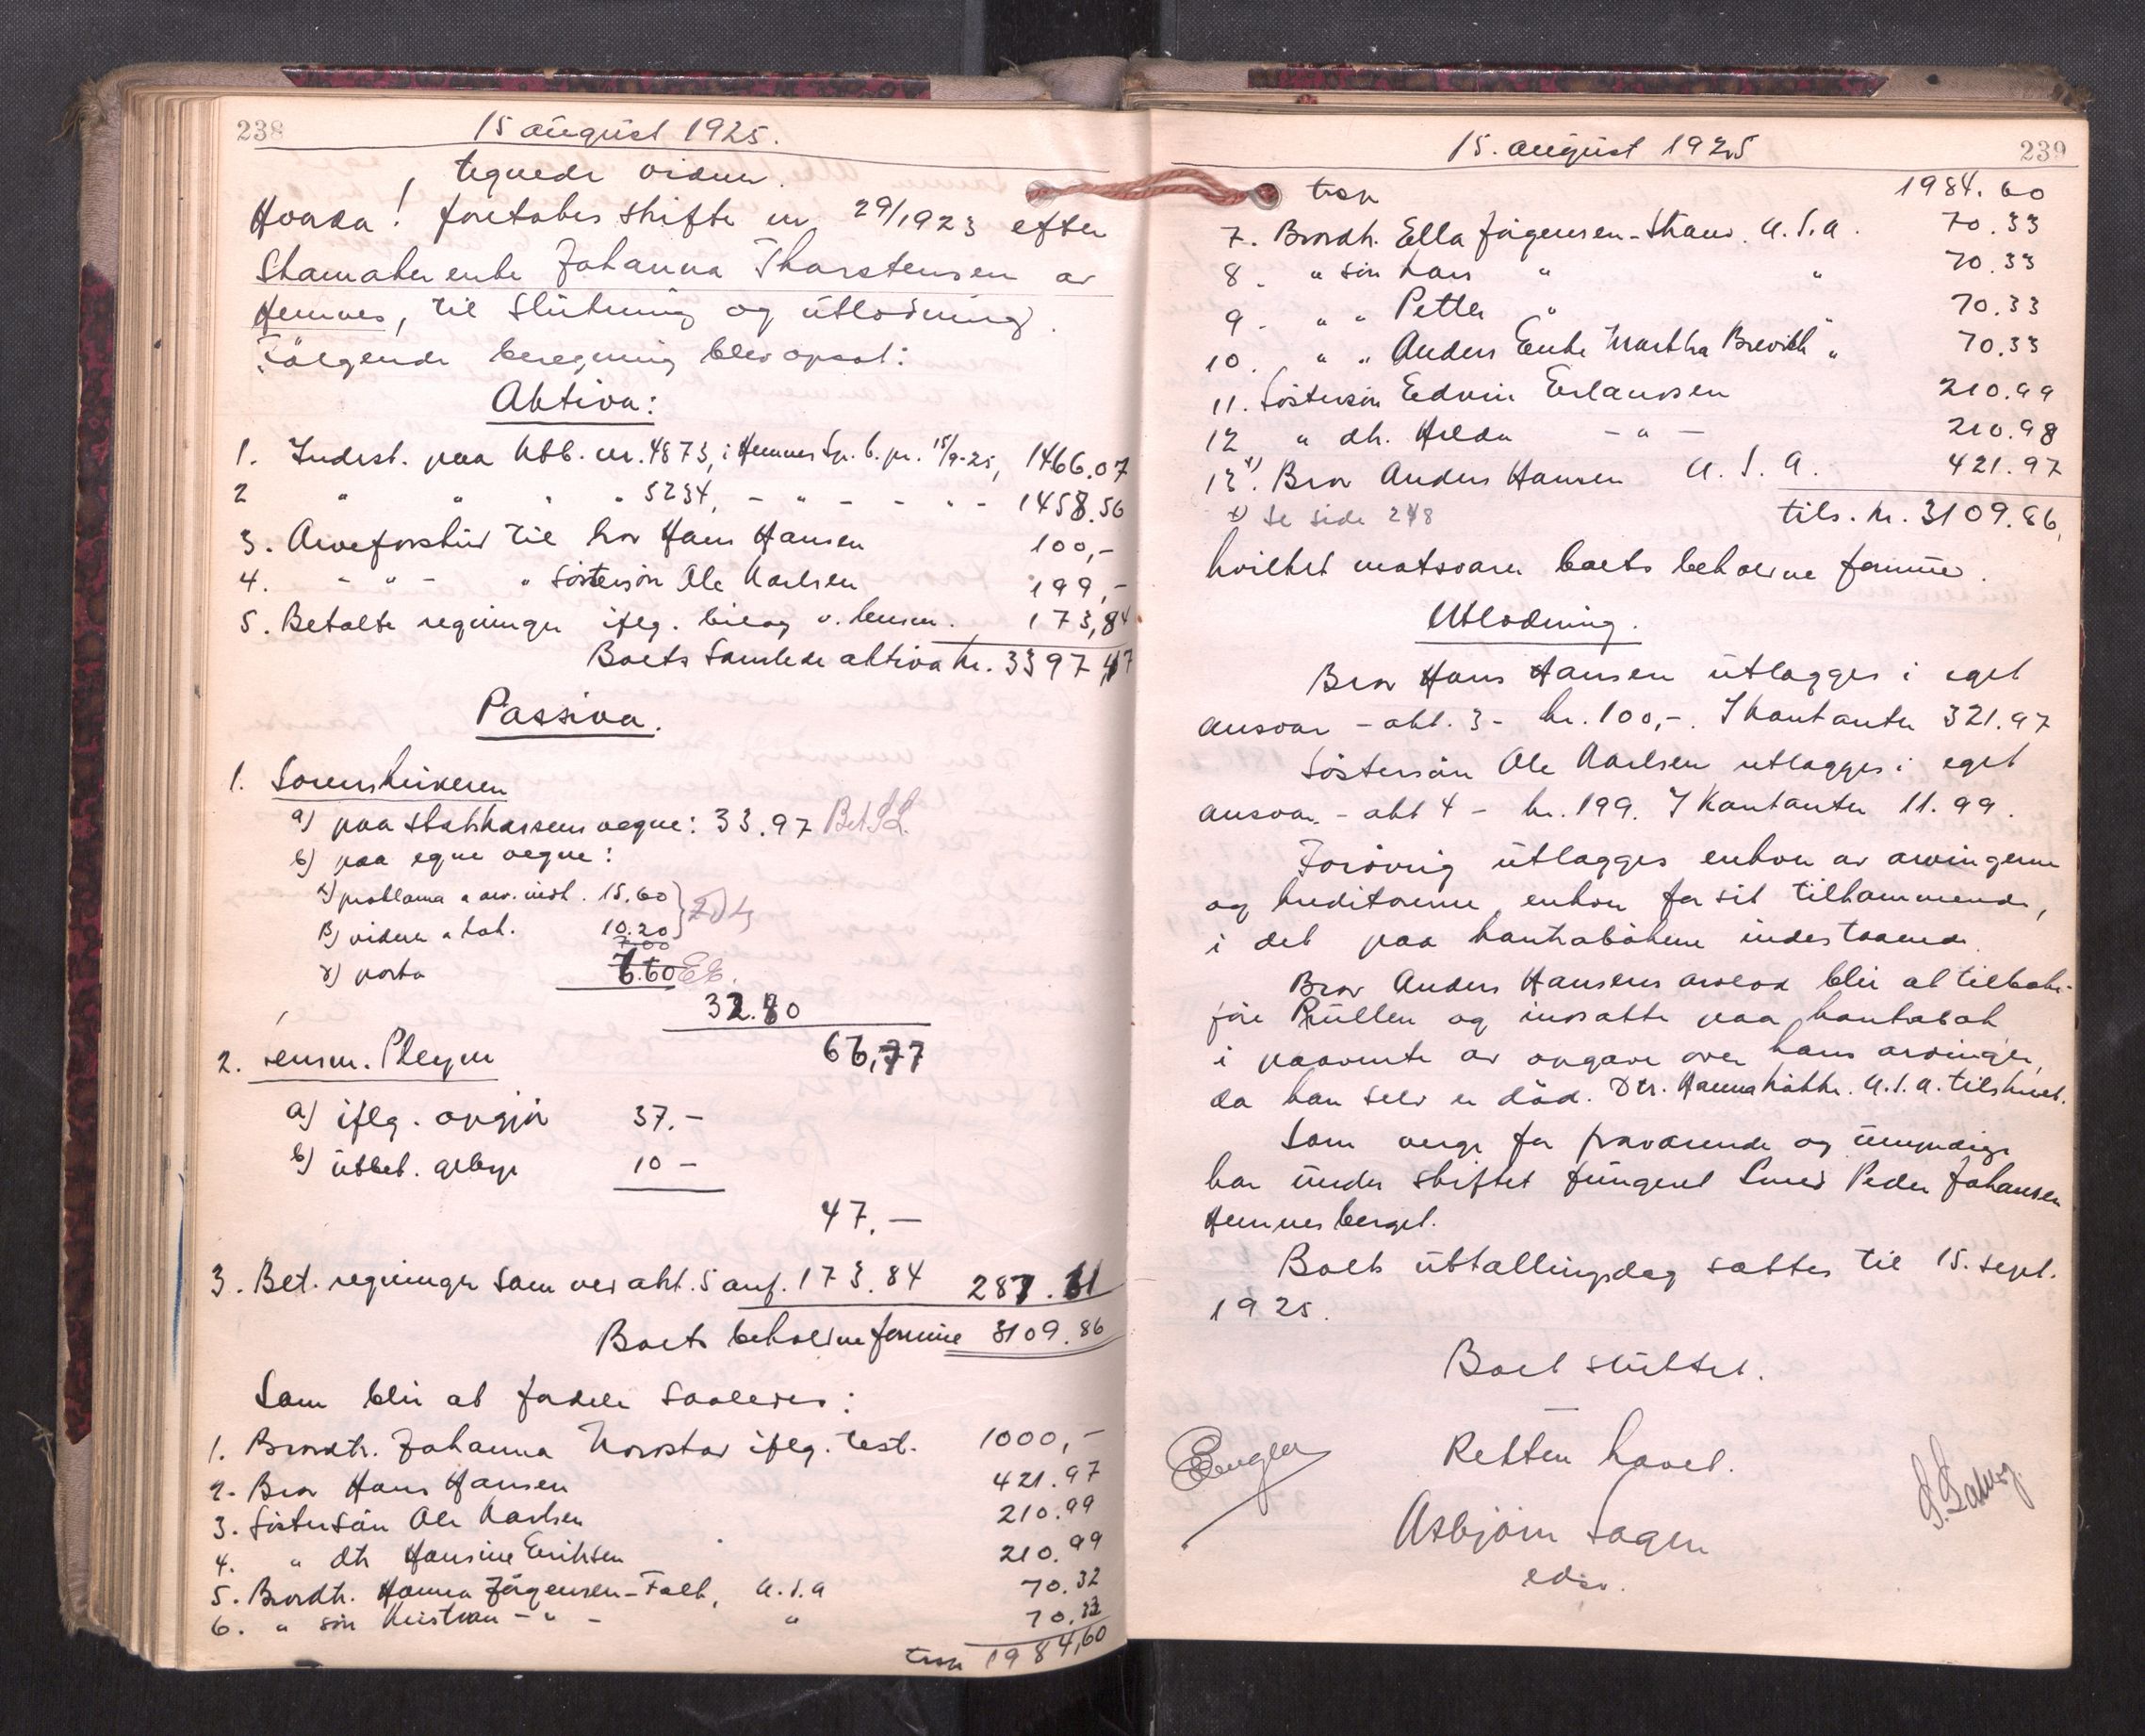 238
15 august 1925.
tegnede vidner.
Hvorda! foretokes skifte nr 29/1923 efter
Skamaker enke Johanna Tharstensen av
Hemnes, til slutning og utlodning.
Følgende beregning blev opsat:
Aktiva:
1. Indest. paa kbb. nr. 4873, i Hemnes Sp. b. pr. 15/9-25, 1466.07
2 " " " " 5234, - " - - " - 1458.56
3. Arveforskud til bror Hans Hansen 100,-
4. - " - " Søstersøn Ole Karlsen 199,-
5. Betalte regninger iflg. bilag v. lensm. 173,84
Boets samlede aktiva kr. 3397,47
Passiva.
1. Sorenskriveren
a) paa statskassens vegne: 33.97 Bet
b) paa egne vegne:
α) proklama & arv. inst. 15.60
β) vidner & tak. 10.20
γ) porto
32.80
66,77
2. Lensm. Pleym
a) iflg. opgjør 37.-
b) utbet. gebyr 10 -
47.-
3. Bet. regninger som ved akt. 5 anf. 173.84 287.61
Boets beholdne formue 3109.86
Som blir at fordele saaledes:
1. Brordtr. Johanna Norstad iflg. test. 1000,-
2. Bror Hans Hansen 421.97
3. Søstersøn Ole Karlsen 210.99
4. " dtr Hansine Eriksen 210.99
5. Brordtr. Hanna Jørgensen-Falk, U.S.A 70.32
6. " søn Kristian - " - " 70.33
trsp 1984,60
15. august 1925
239
trsp 1984.60
7. Brordtr. Ella Jørgensen-Straus. U.S.A. 70.33
8. " søn Lars " " 70.33
9. " " Petter " " 70.33
10. " " Anders Enke Martha Brevick " 70.33
11. Søstersøn Edvin Erlansen 210.99
12 " dtr. Hilda - " - 210.98
13 x). Bror Anders Hansen U.S.A. 421.97
x) Se side 248 tils. kr. 3109.86,
hvilket motsvarer boets beholdne formue.
Utlodning.
Bror Hans Hansen utlægges i eget
ansvar - akt. 3 - kr. 100,-. I kontanter 321.97
Søstersøn Ole Karlsen utlægges i eget
ansvar - akt 4 - kr. 199. I kontanter 11.99.
Forøvrig utlægges enhver av arvingerne
og kreditorerne, enhver for sit tilkommende,
i det paa kontrabøkene indestaaende.
Bror Anders Hansens arvelod blir at tilbake-
føre Rullen og indsætte paa kontrabok
i paavente av opgave over hans arvinger,
da han selv er død. Dtr. Hanna U.S.A. tilskrevet.
Som verge for fraværende og umyndige
har under skiftet fungert Smed Peder Johansen
Hemnesberget.
Boets utbetalingsdag sættes til 15. sept.
1925.
Boet sluttet.
Retten hævet.
Asbjørn Sagen
edsv.